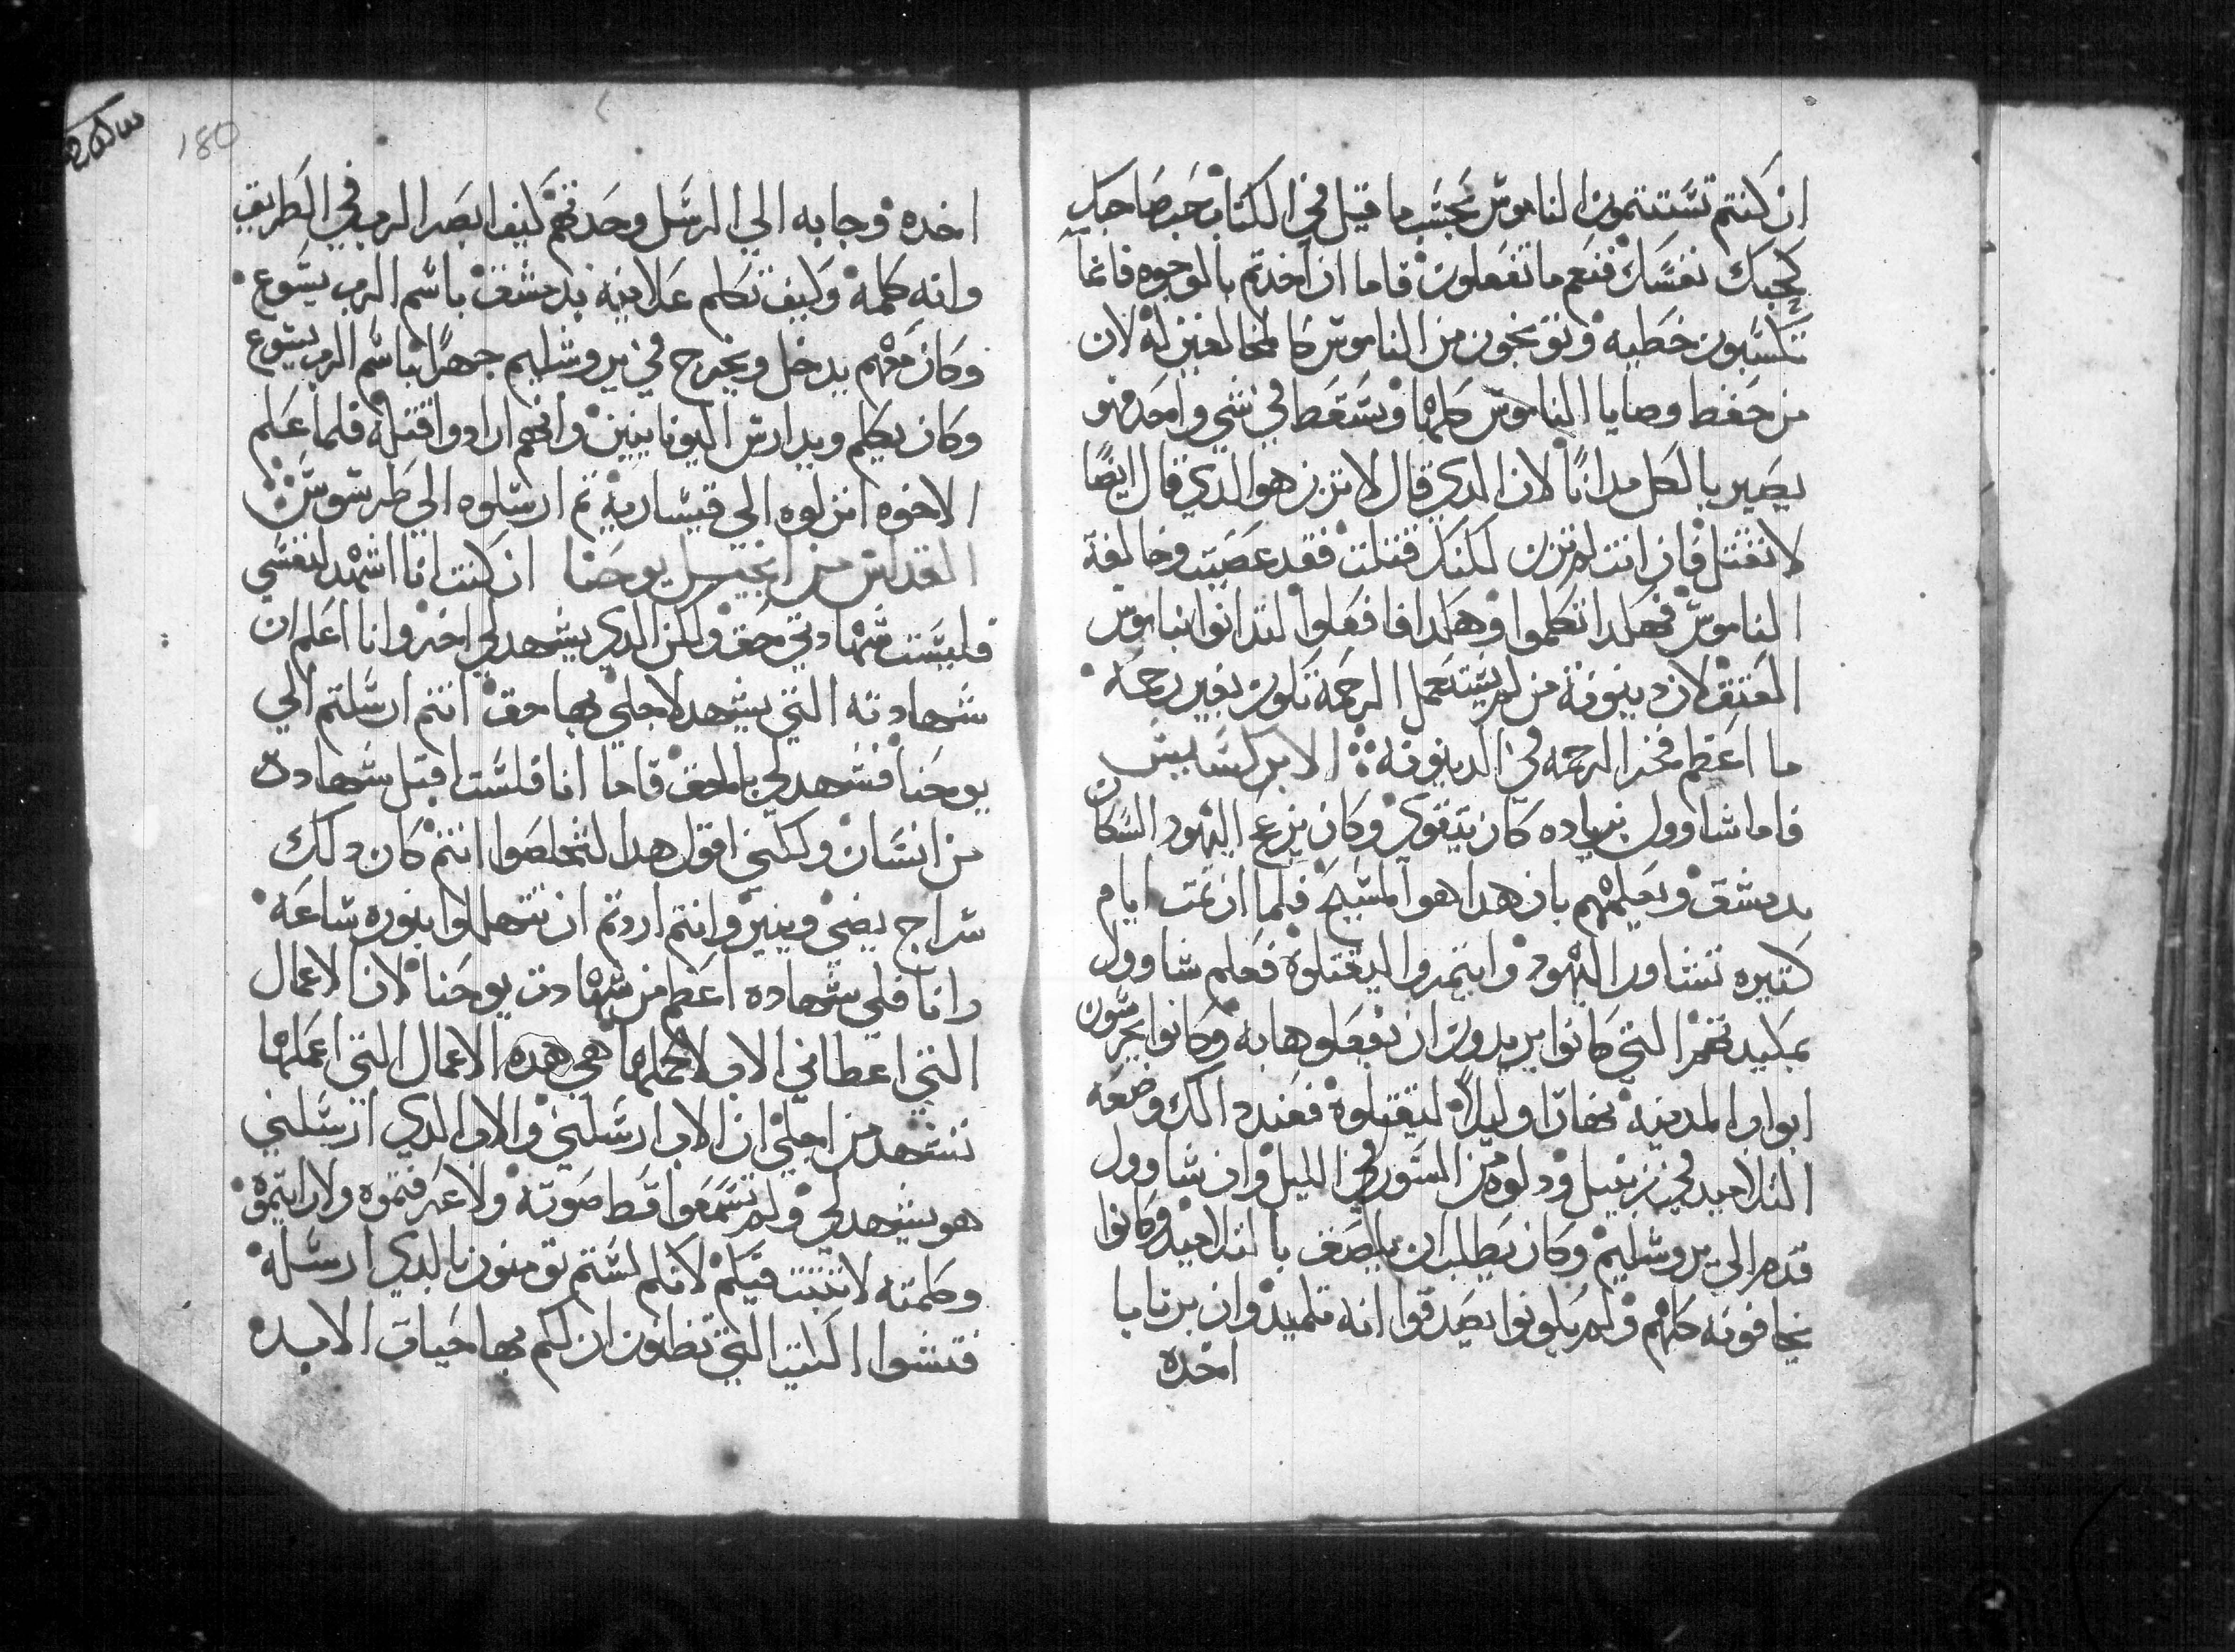 ان كنتم تستتمون الناموس بحسب ما قيل في الكتاب حب صاحبك
كحبك نفسك فنعم ما تفعلون فاما ان اخدتم بالوجوه فانما
تكسبون خطيه وتوبخون من الناموس كالمخالفين له لان
من حفظ وصايا الناموس كلها وسقط في شي واحد فهو
يصير بالكل مدانا لان الدي قال لا تزن هو الدي قال ايضا
لا تقتل فان انت لم تزن لكنك قتلت فقد عصيت وخالفة
الناموس فهكدا تكلموا وهكدا فافعلوا لتدانوا بناموس
العتق لان دينونة من لم يستعمل الرحمة تكون بغير رحمه
ما اعظم فخر الرحمه في الدينونه الابركسيس
فاما شاوول بزياده كان يتقوي وكان يزعج اليهود السكان
بدمشق ويعلمهم بان هدا هو المسيح فلما ان تمت ايام
كتيره تشاور اليهود وايتمروا ليقتلوه فعلم شاوول
بمكيدتهم التي كانوا يريدون ان يفعلوها به وكانوا يحرسون
ابواب المدينه نهارا وليلا ليقتلوه فعند دالك وضعه
التلاميد في زنبيل ودلوه من السور في الليل وان شاوول
قدم الي يروشليم وكان يطلب ان يلصق بالتلاميد وكانوا
يخافونه كلهم ولم يكونوا يصدقوا انه تلميد وان برنابا
اخده
180
اخده وجابه الي الرسل وحدتهم كيف ابصر الرب في الطريق
وانه كلمه وكيف تكلم علانيه بدمشق باسم الرب يسوع
وكان معهم يدخل ويخرج في يروشليم جهرا باسم الرب يسوع
وكان يكلم ويدارس اليونانيين وانهم ارادوا قتله فلما علم
الاخوه انزلوه الي قيساريه تم ارسلوه الي طرسوس
القداس من انجيل يوحنا ان كنت انا اشهد لنفسي
فليست شهادتي حق ولكن الدي يشهد لي اخر وانا اعلم ان
شهادته التي يشهد لاجلي بها حق انتم ارسلتم الي
يوحنا فشهد لي بالحق فاما انا فلست اقبل شهاده
من انسان ولكني اقول هدا لتخلصوا انتم كان دلك
سراج يضي وينير وانتم اردتم ان تتهللوا بنوره ساعه
وانا فلي شهاده اعظم من شهادت يوحنا لان الاعمال
التي اعطاني الاب لاكملها هي هده الاعمال التي اعملها
تشهد من اجلي ان الاب ارسلني والاب الدي ارسلني
هو يشهد لي ولم تسمعوا قط صوته ولا عرفتموه ولا رايتموه
وكلمته لا تثبت فيكم لانكم لستم تومنون بالدي ارسله
فتشوا الكتب التي تظنون ان لكم بها حياة الابده